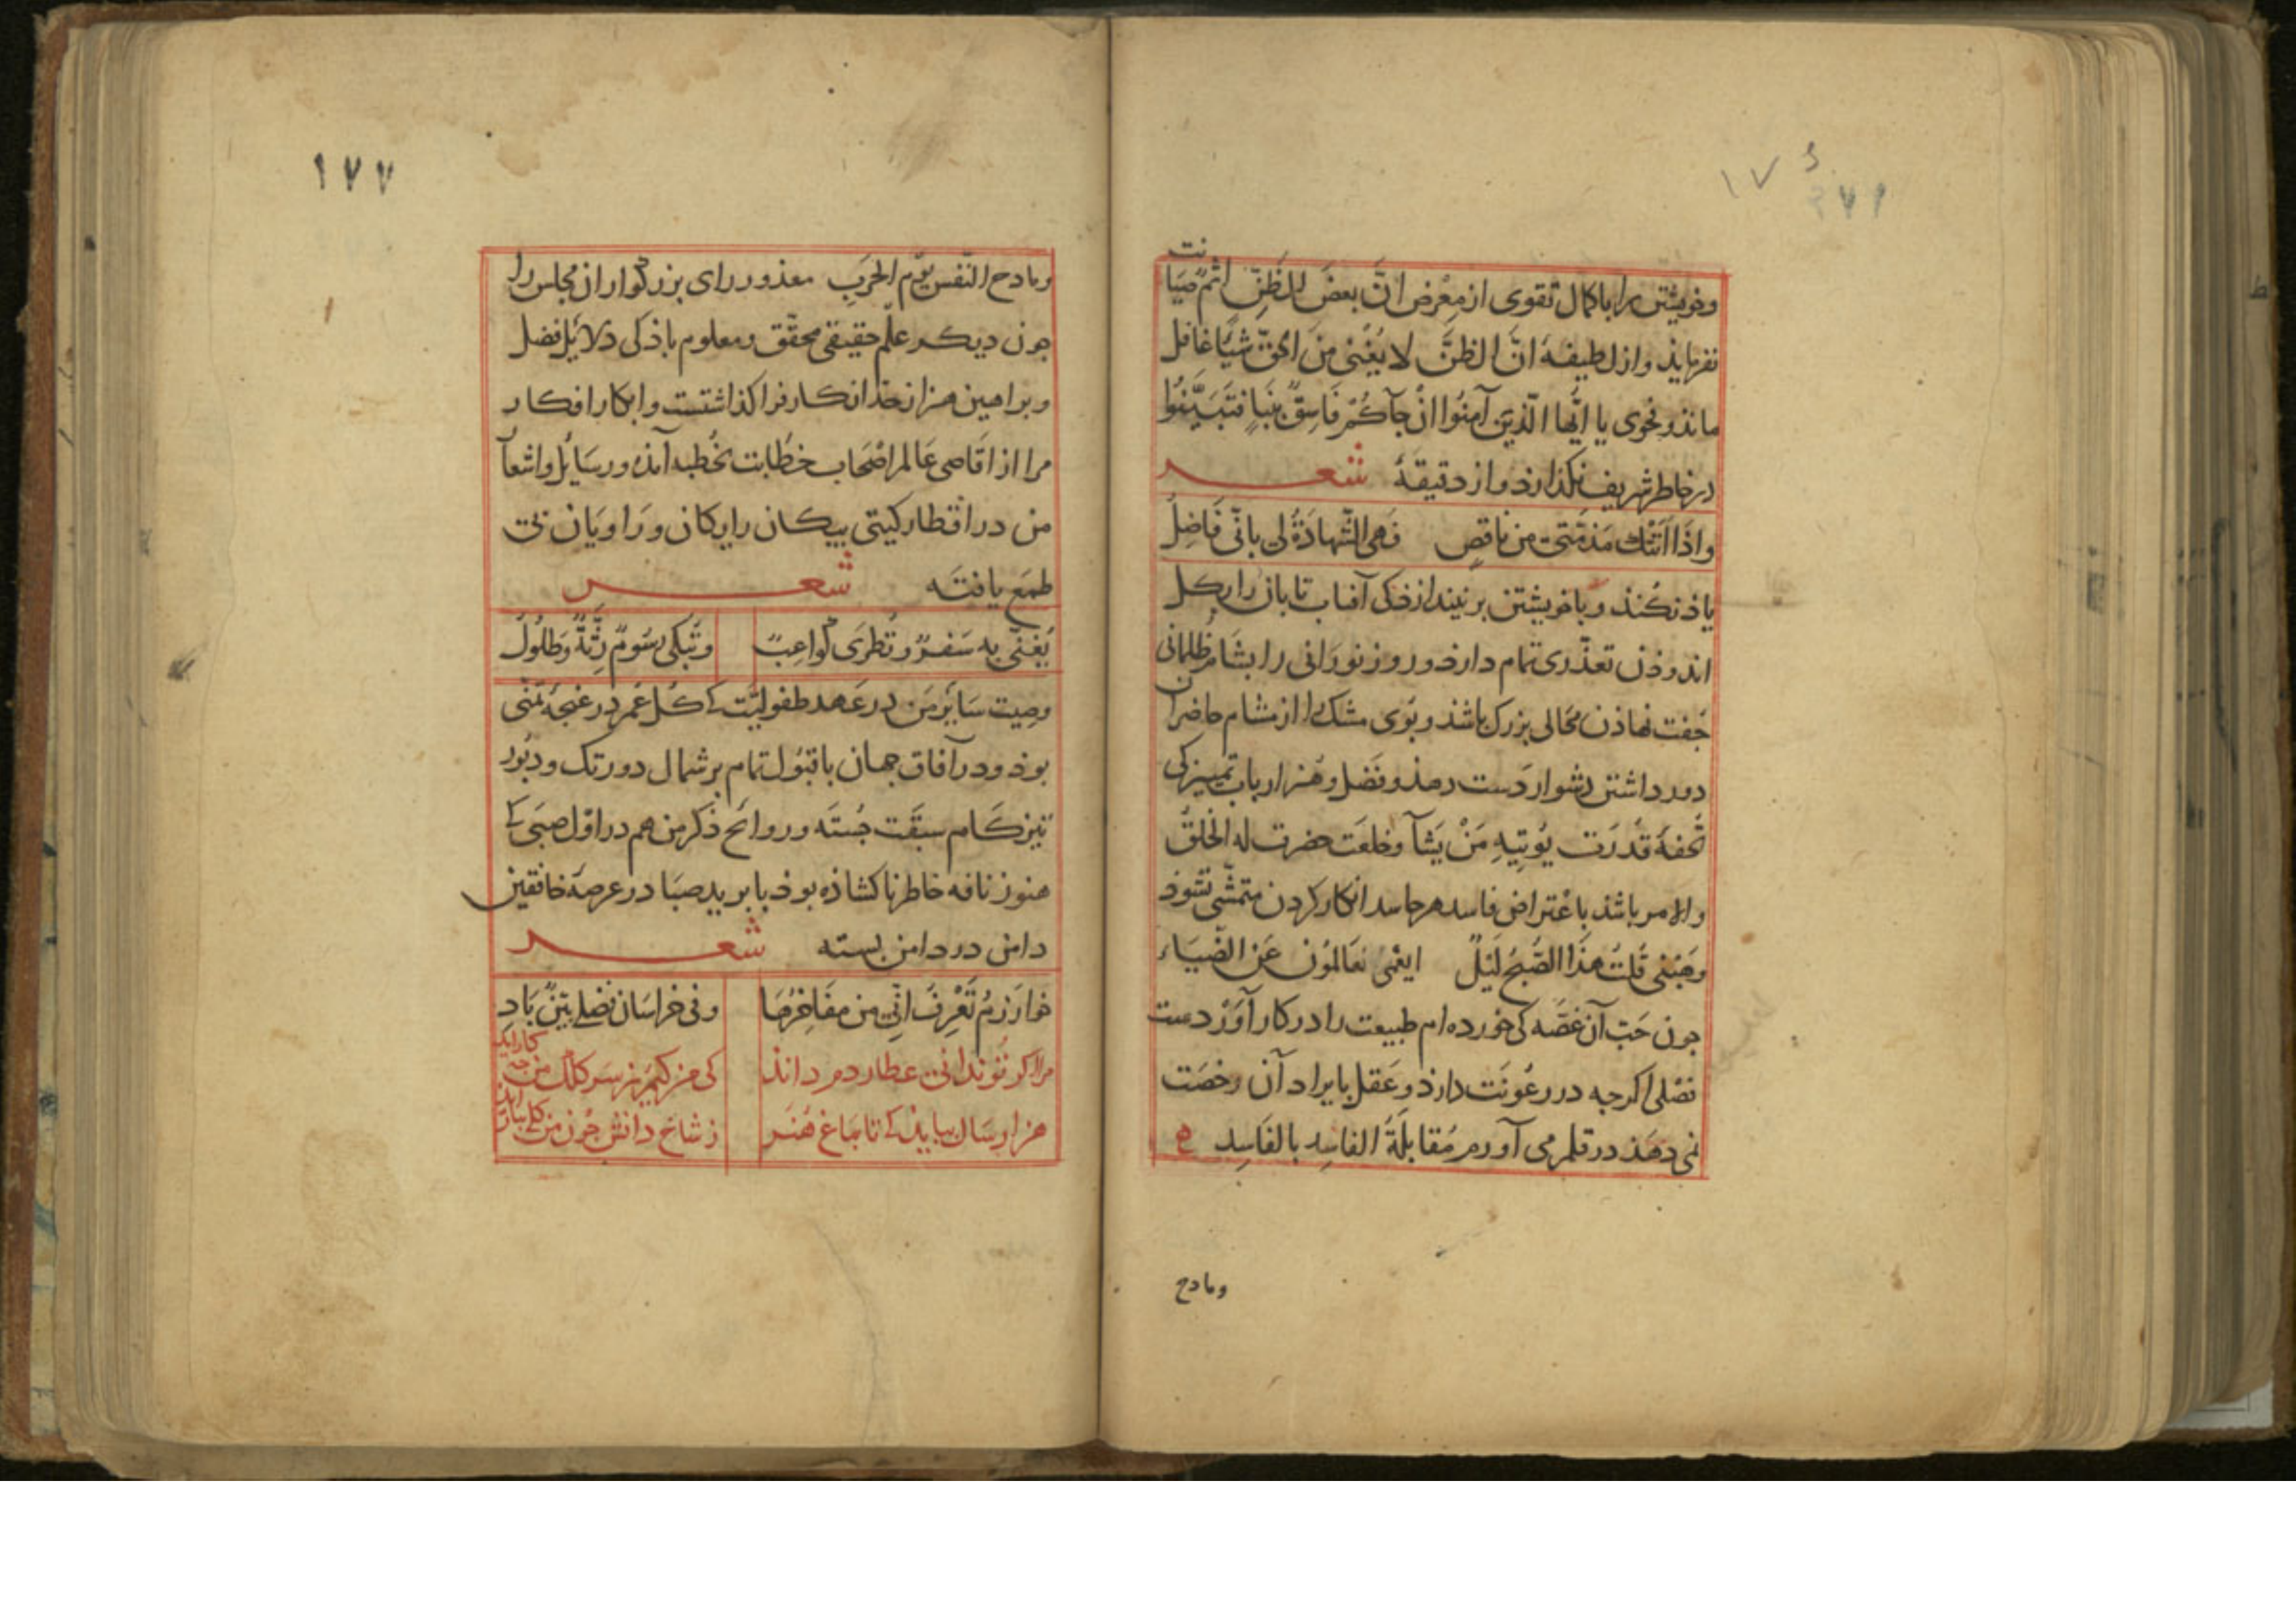 وخویشتن را با کمال تقوی از معرض انَّ بعضَ الظَّنِّ اثمٌ صیَانت
نفرماید واز لطیفهٔ انَّ الظنَّ لا یُغْنی منَ الحقِّ شیًٔا غافل
ماند و فحوی یا ایُّها الّذینَ آمنُوا انْ جآکُمْ فَاسِقٌ بنَبإٍ فتَبَیَّنُوا
در خاطر شریف نکذارد واز دقیقهٔ شعر
واذَا اَتَتْكَ مَذمَّتی من ناقصٍ فَهی الشَّهادَةُ لی بانّی فَاضِلُ
یاذ نکُند و با خویشتن
آفتاب تابان را بکل
اندوذن تعذّری تمام دارد و روز نورانی را بشام ظلمانی
جُفت نهاذن محالی بزرک باشد و بوی مشك را از مشام حاضران
دور داشتن دشوار دست دهذ و فَضل و هُنر ارباب تمییز کی
تُحفهٔ قدرَت یُوتِیهِ مَنْ یَشآ وخلعَت حضرت له الخلقُ
والامر باشد باعْتراض فاسد هر حاسد انکار کردن متمشّی نشود
وهَبْنی قُلتُ هذَا الصُّبحُ لَیْلٌ ایعْمَی العَالمُون عَن الضّیَاء
جون حَبّ آن غصّه کی خورده ام طبیعت را در کار آوَرْد دست
فصْلی اکرجه در رعُونَت دارد و عَقل بایراد آن رخصَت
نمی دهَذ در قلم می آورم مُقابلَةُ الفاسِد بالفَاسِد
ومادح
١٧٧
ومادح النّفس یوْم الحَربِ معذور رای بزرکوار ان مجلس را
جون دیکر علم حقیقی محقّق و معلوم باذ کی دلایل فضل
وبراهین هنر از حدّ انکار فرا کذاشتست وابکار افکار
مرا از اقاصی عَالم اصْحاب خطابت بخُطبه آمذه ورسَایل واشعآ
من در اقطار کیتی بیکان رایکان وَرَاویَان بی
طمَع یافتَه شعر
یُغنّی به سَفرٌ وتُطْرَی کواعِبٌ وتُبْکی رسُومٌ رَثَّةٌ وطلُولُ
وصِیت سَایر من در عَهد طفولیّت کی کُل عُمر در غنجهٔ تمنّی
بوذ ودر آفاق جهان با قبُول تمام بر شمال دورتک ودبُور
تیز کَام سبقَت جُستَه وروائح ذکر من هم در اوّل صبَی کی
هنوز نافه خاطر ناکشاذه بوذ با برید صبَا در عرصهٔ خافقین
دامن در دامن بسته شعر
خوارَزمُ تَعْرِفُ انّی من مفَاخِرُهَا وفی خراسَان فضلی بیّنٌ بَادِ
مرا اکر تو ندانی عطاردم داند کی من کیم ز سر کلک من جه کار آید
هزار سَال بباید کی تا بباغ هُنَر ز شاخ دانش جون من کلی ببار آید